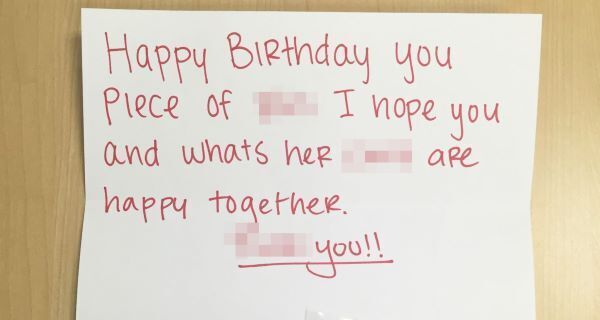 Happy Birthday you
Piece of I hope you
and whats her are
happy together.
you!!